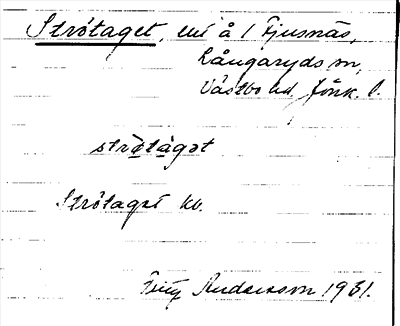 Strötaget, vid å i Tjusnäs,
Långaryds sn,
Västbo hd, Jönk. l.
strö̀tàgət
Strötaget kv.
Andersson 1931.